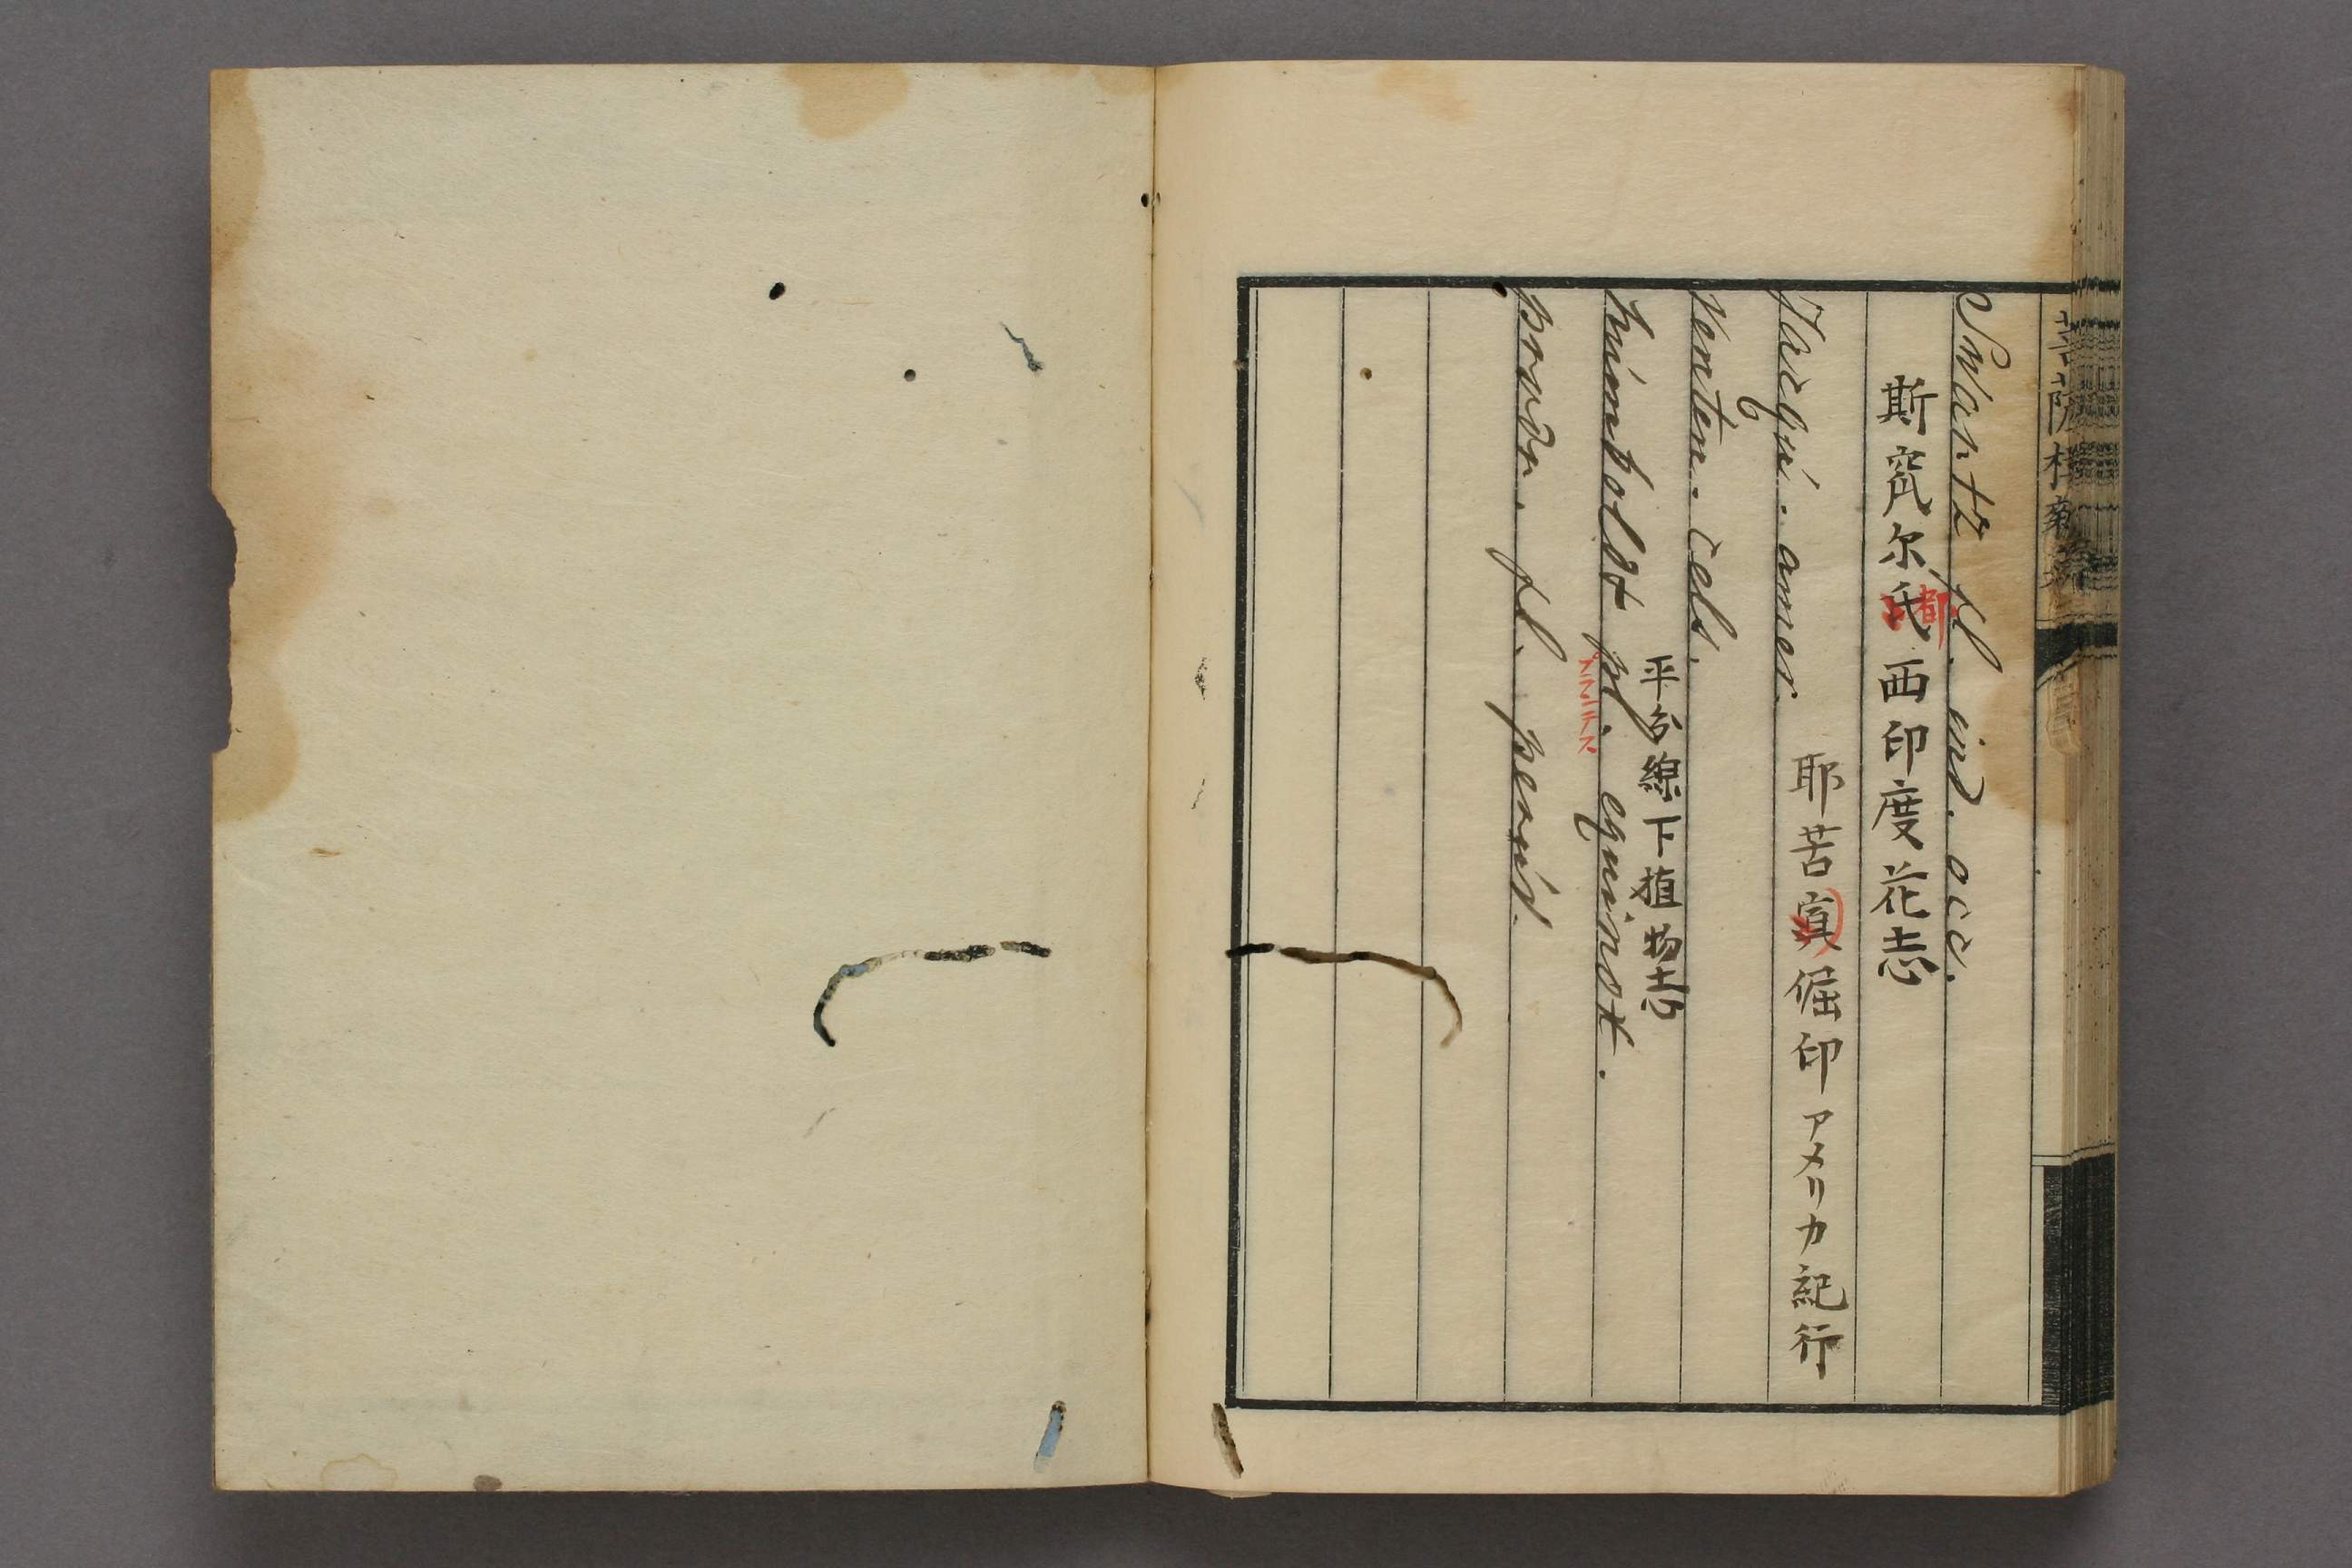 Swartz fl. ind. occ.
斯窊尔氏西印度花志
都
Jacqui. amer.
耶苦寘倔印アメリカ紀行
Venten. Cels.
平分線下植物志
humboldt pl. equinox.
プランテス
provdr. fl. peruv.